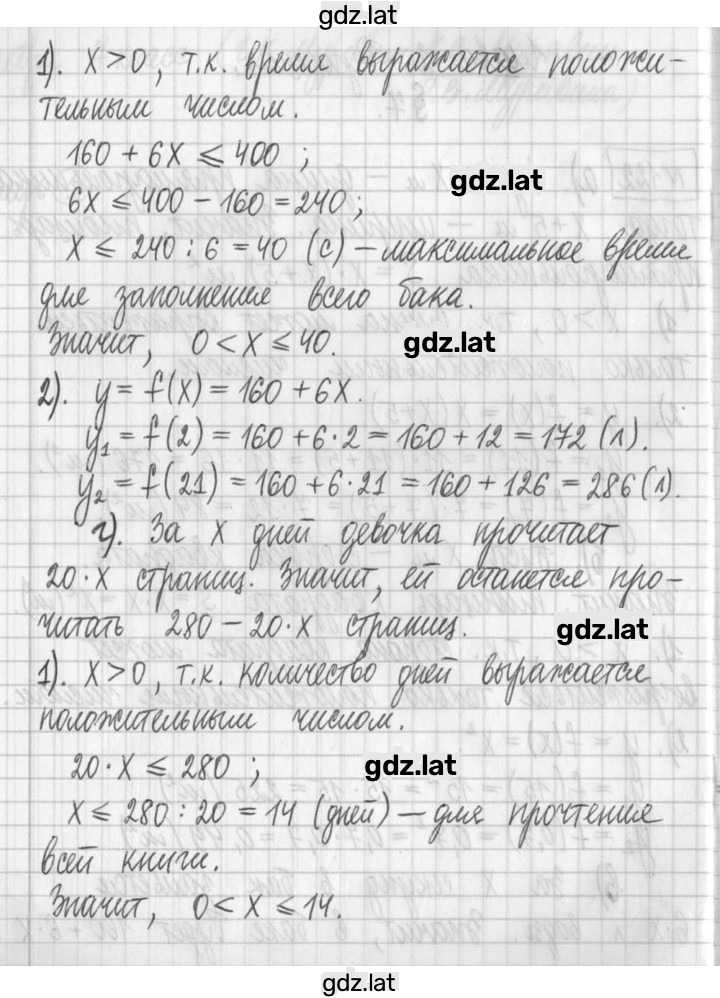 gdz.lat
1). X > 0, т.к. время выражается положи-
тельным числом.
160 + 6X ⩽ 400 ;
gdz.lat
6X ⩽ 400 - 160 = 240 ;
X ⩽ 240 : 6 = 40 (с) – максимальное время
для заполнения всего бака.
Значит, 0 < X ⩽ 40.
gdz.lat
2). y = f(X) = 160 + 6X.
y₁ = f(2) = 160 + 6·2 = 160 + 12 = 172 (л).
y₂ = f(21) = 160 + 6·21 = 160 + 126 = 286 (л).
г). За X дней девочка прочитает
20·X страниц. Значит, ей останется про-
читать 280 – 20·X страниц.
gdz.lat
1). X > 0, т.к. количество дней выражается
положительным числом.
20·X ⩽ 280 ;
gdz.lat
X ⩽ 280 : 20 = 14 (дней) – для прочтения
всей книги.
Значит, 0 < X ⩽ 14.
gdz.lat